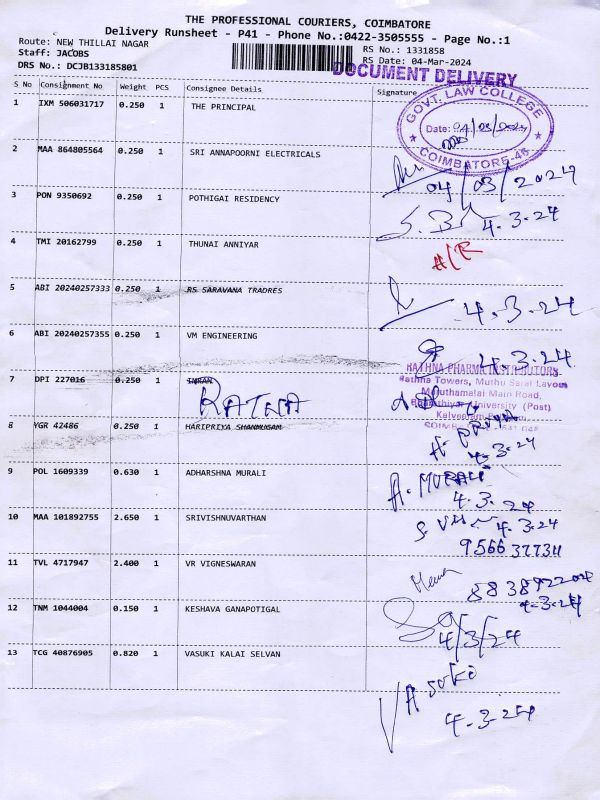 THE PROFESSIONAL COURIERS, COIMBATORE
Delivery Runsheet - P41 - Phone No.:0422-3505555 - Page No.:1
Route: NEW THILLAI NAGAR
RS No.: 1331858
Staff: JACOBS
RS Date: 04-Mar-2024
DRS No.: DCJB133185801
DOCUMENT DELIVERY
S No Consignment No Weight PCS Consignee Details Signature
1 IXM 506031717 0.250 1 THE PRINCIPAL
GOVT. LAW COLLEGE
Date: 04/03/2024
COIMBATORE-46
2 MAA 864805564 0.250 1 SRI ANNAPOORNI ELECTRICALS
04/03/2024
3 PON 9350692 0.250 1 POTHIGAI RESIDENCY
4.3.24
4 TMI 20162799 0.250 1 THUNAI ANNIYAR
5 ABI 20240257333 0.250 1 RS SARAVANA TRADRES
4.3.24
6 ABI 20240257355 0.250 1 VM ENGINEERING
4.3.24
RATHNA PHARMA DISTRIBUTORS
Rathna Towers, Muthu Sarai Layout
Maruthamalai Main Road,
University (Post)
7 DPI 227016 0.250 1 IMRAN
RATHA
8 YGR 42486 0.250 1 HARIPRIYA SHANMUGAM
H. PRIYA
4-3-24
9 POL 1609339 0.630 1 ADHARSHNA MURALI
A. MURALI
4.3.24
10 MAA 101892755 2.650 1 SRIVISHNUVARTHAN
4-3-24
9566 37734
11 TVL 4717947 2.400 1 VR VIGNESWARAN
4-3-24
12 TNM 1044004 0.150 1 KESHAVA GANAPOTIGAL
4/3/24
13 TCG 40876905 0.820 1 VASUKI KALAI SELVAN
VASUKI
4-3-24